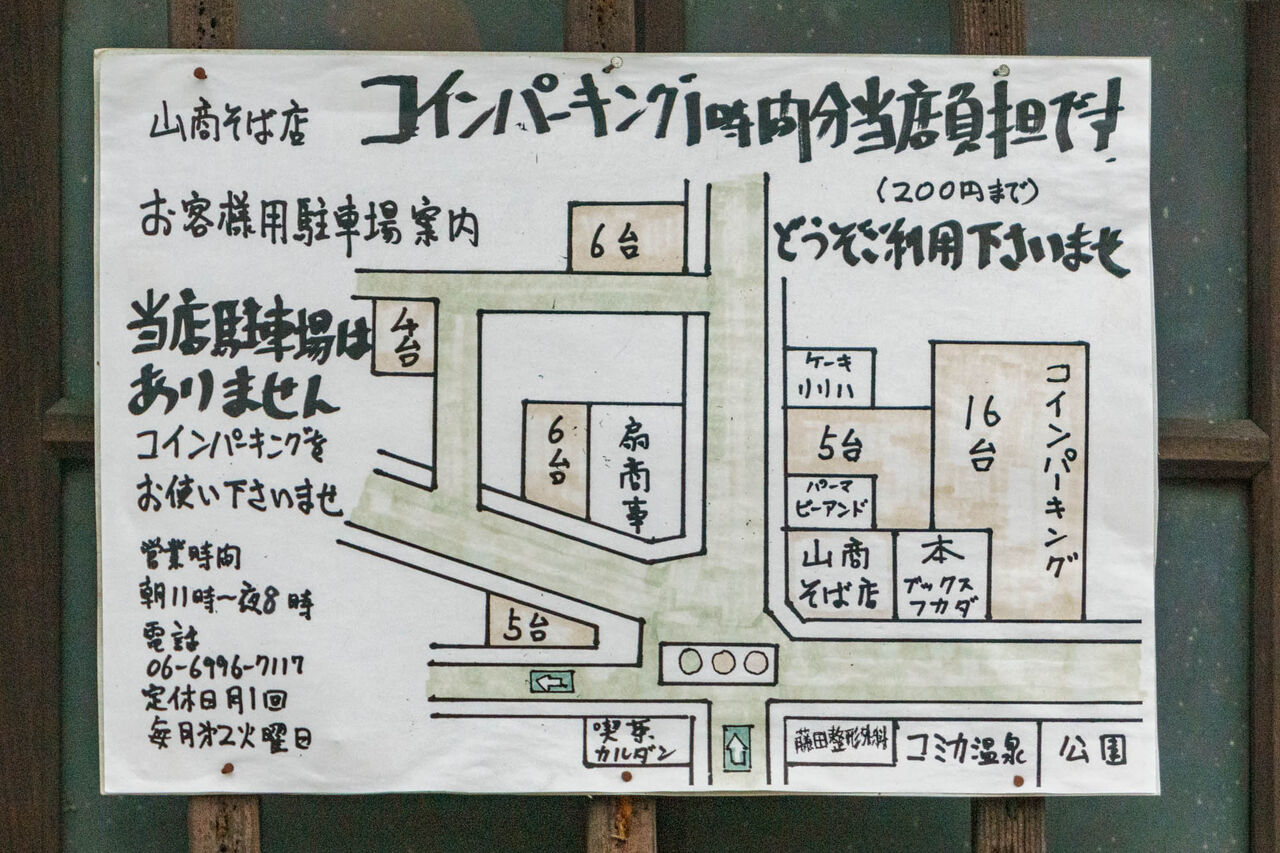 山商そば店
コインパーキング1時間分当店負担です
(200円まで)
お客様用駐車場案内
どうぞご利用下さいませ
当店駐車場は
ありません
コインパーキングを
お使い下さいませ
営業時間
朝11時〜夜8時
電話
06-6996-7117
定休日月1回
毎月第2火曜日
6台
4台
6台
扇商事
5台
ケーキ
リリハ
5台
パーマ
ビーアンド
山商
そば店
本
ブックス
フカダ
16台
コインパーキング
←
⇧
喫茶
カルダン
藤田整形外科
コミカ温泉
公園